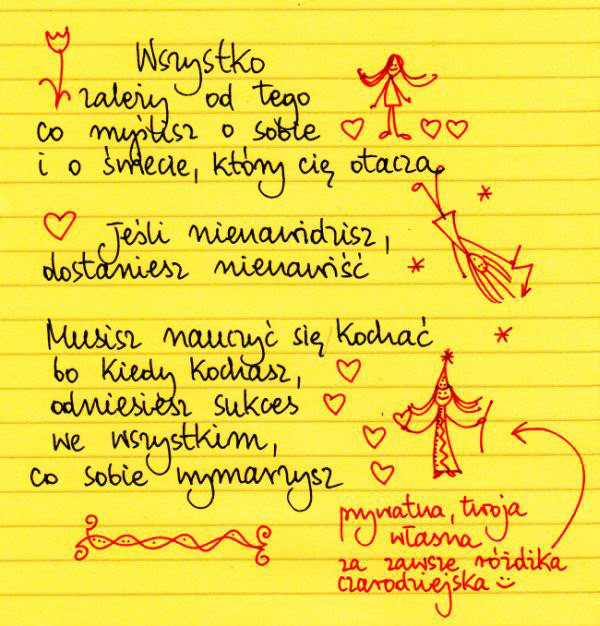 Wszystko
zależy od tego
co myślisz o sobie
i o świecie, który cię otacza
Jeśli nienawidzisz,
dostaniesz nienawiść
Musisz nauczyć się kochać
bo kiedy kochasz,
odniesiesz sukces
we wszystkim,
co sobie wymarzysz
prywatna, twoja
własna
za zawsze różdżka
czarodziejska